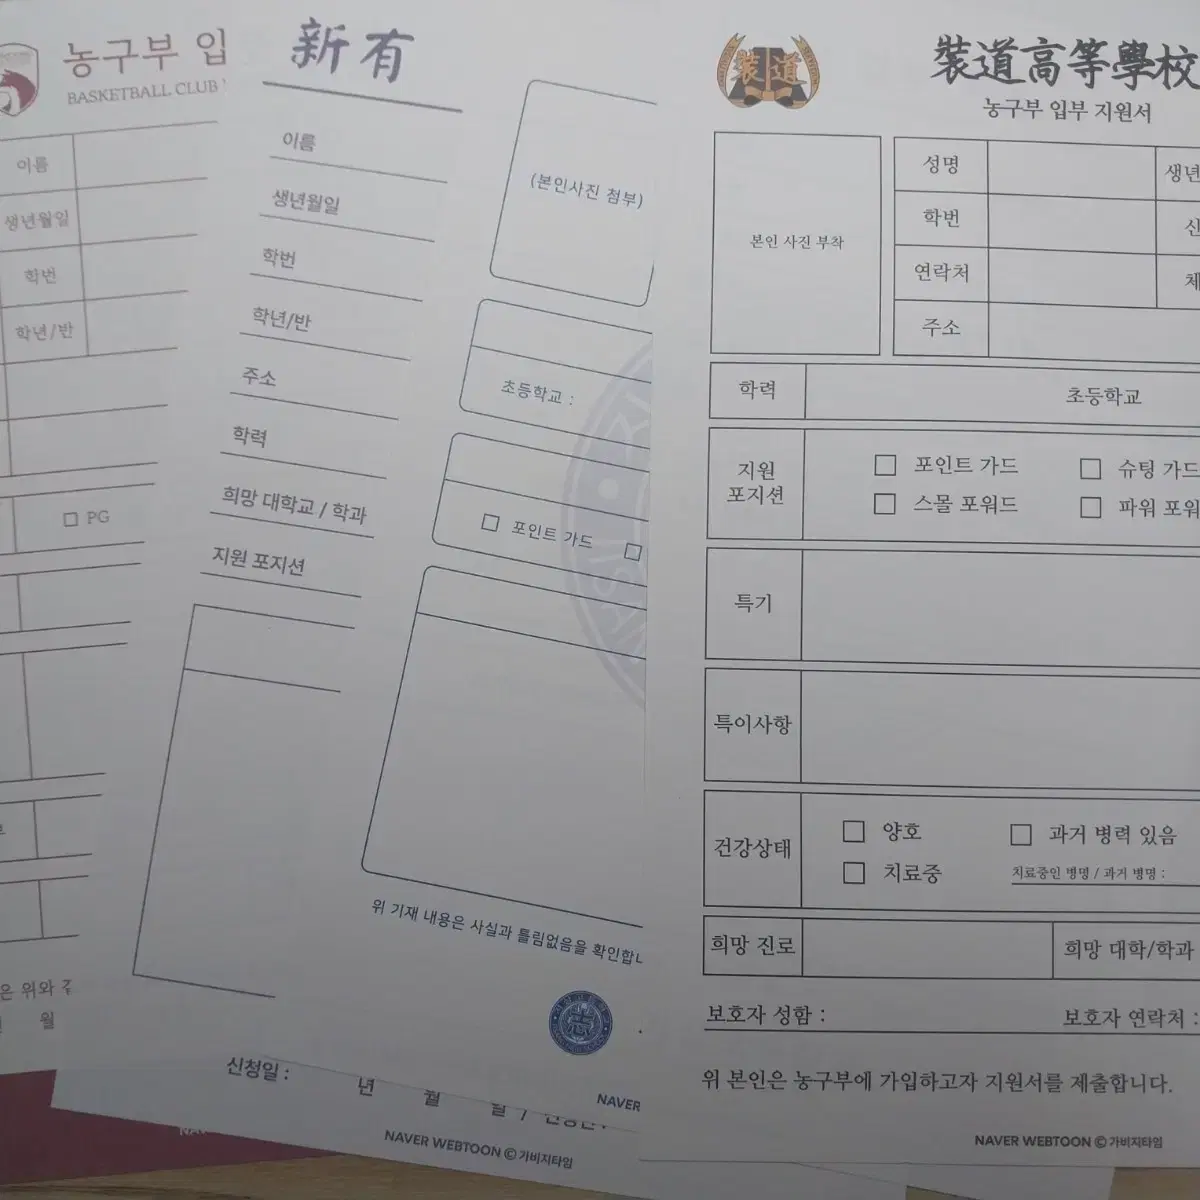 농구부 입
BASKETBALL CLUB
이름
생년월일
학번
학년/반
PG
은 위와 같
월
新有
이름
생년월일
학번
학년/반
주소
학력
희망 대학교 / 학과
지원 포지션
신청일 : 년 월 일 /
NAVER WEBTOON © 가비지타임
(본인사진 첨부)
초등학교 :
포인트 가드
위 기재 내용은 사실과 틀림없음을 확인합니
NAVER
裝道
裝道高等學校
농구부 입부 지원서
본인 사진 부착
성명 생년
학번 신
연락처 체
주소
학력 초등학교
지원 포지션
포인트 가드 슈팅 가드
스몰 포워드 파워 포워
특기
특이사항
건강상태
양호 과거 병력 있음
치료중 치료중인 병명 / 과거 병명 :
희망 진로 희망 대학/학과
보호자 성함 : 보호자 연락처 :
위 본인은 농구부에 가입하고자 지원서를 제출합니다.
NAVER WEBTOON © 가비지타임